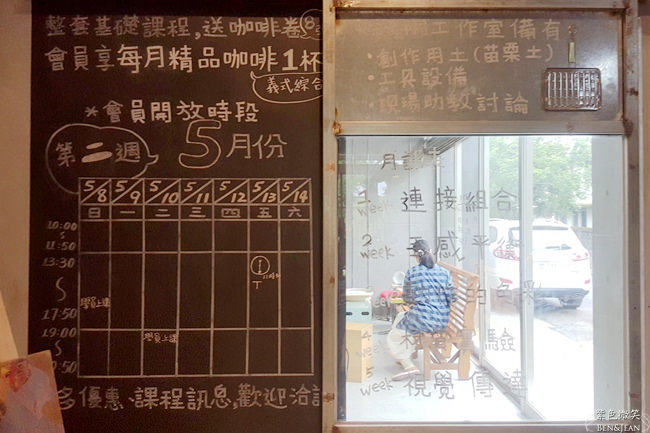 整套基礎課程,送咖啡卷
會員享每月精品咖啡1杯
義式綜合
*會員開放時段
第二週
5月份
5/8 5/9 5/10 5/11 5/12 5/13 5/14
日 一 二 三 四 五 六
10:00
~
11:50
13:30
~
17:50
19:00
~
學員上課
學員上課
多優惠、課程訊息,歡迎洽
工作室備有
・創作用土(苗栗土)
・工具設備
・現場助教討論
月課表
1 week 連接組合
2 week 平衡
week 的色彩
4 week 驗
5 week 視覺傳達
紫色微笑
BEN&JEAN